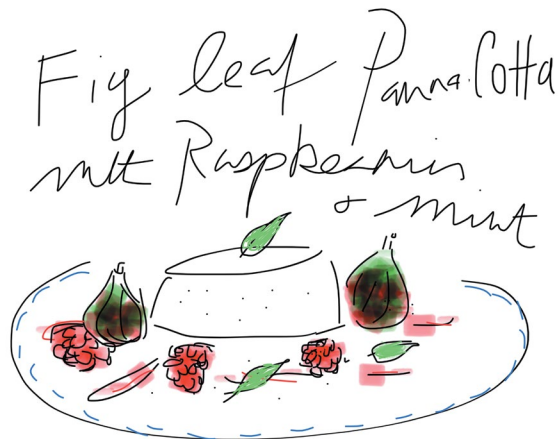 Fig leaf Panna Cotta
with Raspberries
& mint